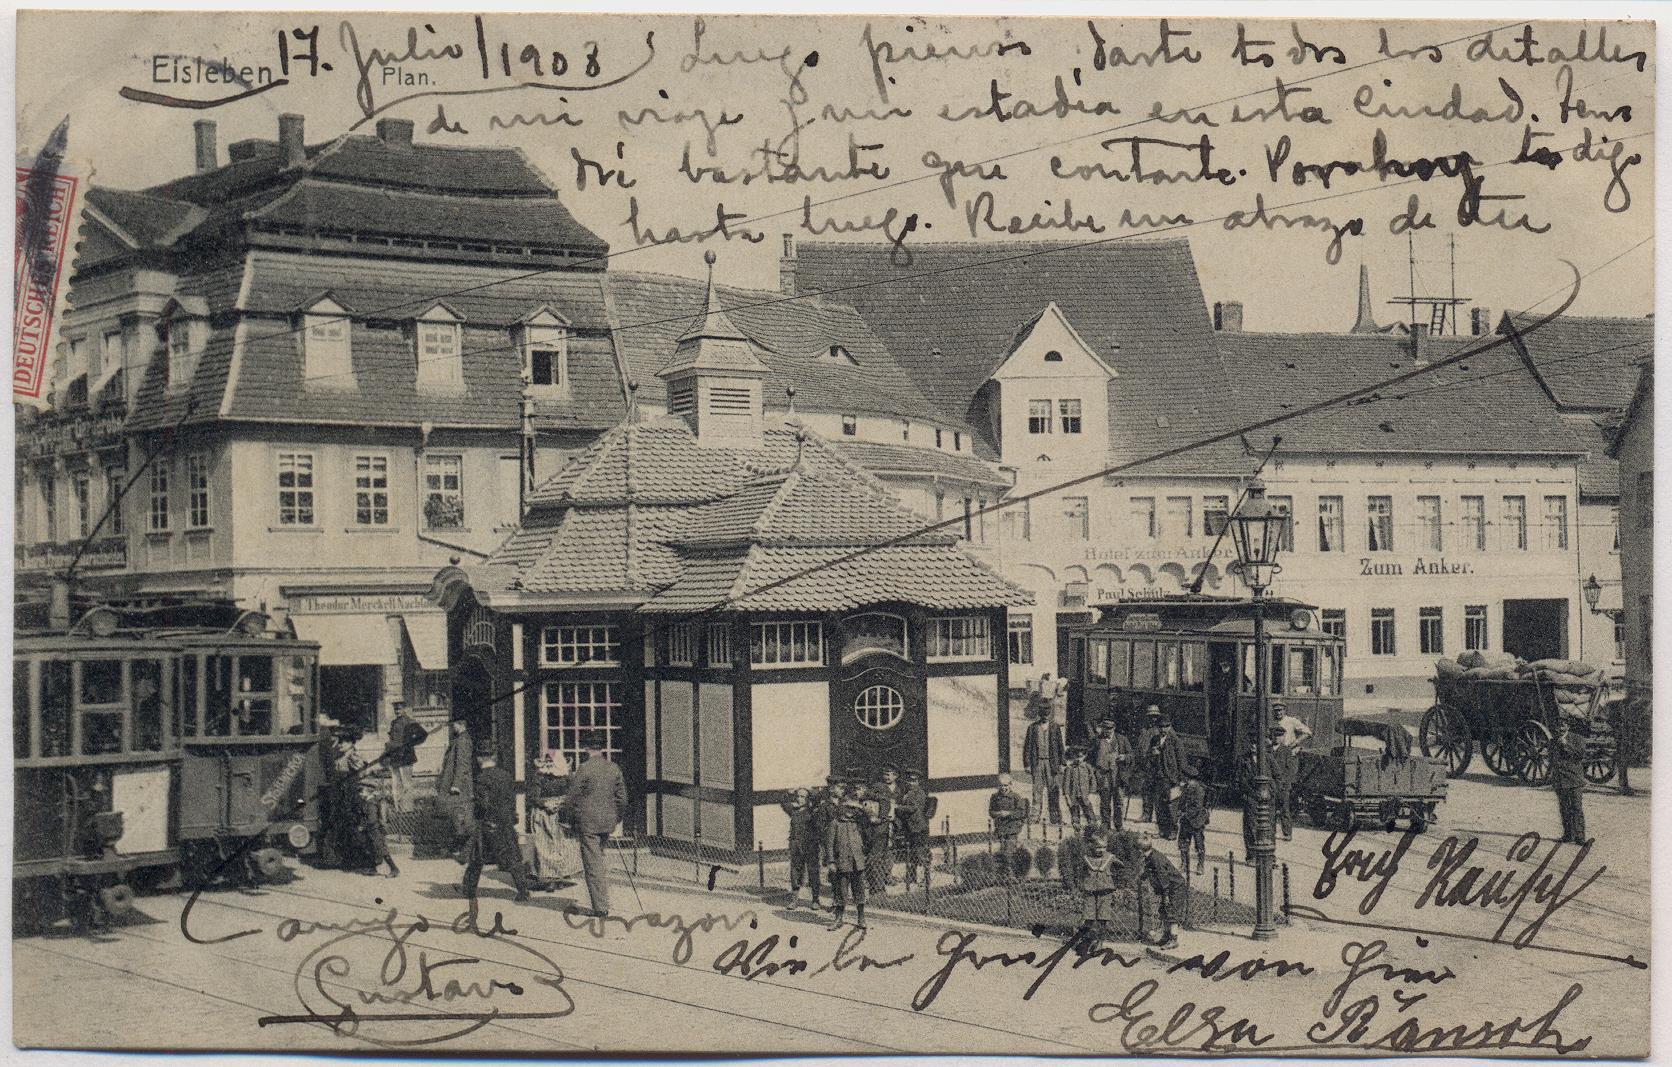 Eisleben 17. Julio/1908 Luego pienso darte todos los detalles
Plan.
de mi viaje y mi estadía en esta Ciudad. Ten
dré bastante que contarte. Por ahoy te digo
hasta luego. Recibe un abrazo de tu
DEUTSCHES REICH
Hotel zum Anker
Zum Anker.
Paul Schulz
Theodor Merckell Nachf.
amigo de corazon
Gustavo
Viele Grüße von hier